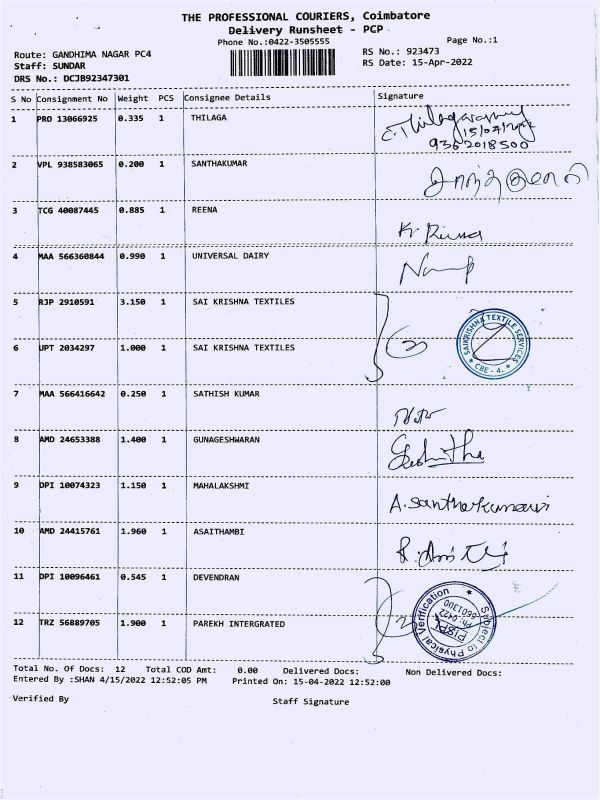 THE PROFESSIONAL COURIERS, Coimbatore
Delivery Runsheet - PCP
Phone No.:0422-3505555
Page No.:1
Route: GANDHIMA NAGAR PC4
RS No.: 923473
Staff: SUNDAR
RS Date: 15-Apr-2022
DRS No.: DCJB92347301
S No Consignment No Weight PCS Consignee Details Signature
1 PRO 13066925 0.335 1 THILAGA
15/04/2022
9362018500
2 VPL 938583065 0.200 1 SANTHAKUMAR
3 TCG 40087445 0.885 1 REENA
4 MAA 566360844 0.990 1 UNIVERSAL DAIRY
5 RJP 2910591 3.150 1 SAI KRISHNA TEXTILES
SAIKRISHNA TEXTILE SERVICES
* CBE - 4. *
6 JPT 2034297 1.000 1 SAI KRISHNA TEXTILES
7 MAA 566416642 0.250 1 SATHISH KUMAR
8 AMD 24653388 1.400 1 GUNAGESHWARAN
9 DPI 10074323 1.150 1 MAHALAKSHMI
A. Santhakumari
10 AMD 24415761 1.960 1 ASAITHAMBI
11 DPI 10096461 0.545 1 DEVENDRAN
Subject to Physical Verification
Ph: 0422
6601300
12 TRZ 56889705 1.900 1 PAREKH INTERGRATED
Total No. Of Docs: 12 Total COD Amt: 0.00 Delivered Docs: Non Delivered Docs:
Entered By :SHAN 4/15/2022 12:52:05 PM Printed On: 15-04-2022 12:52:00
Verified By
Staff Signature